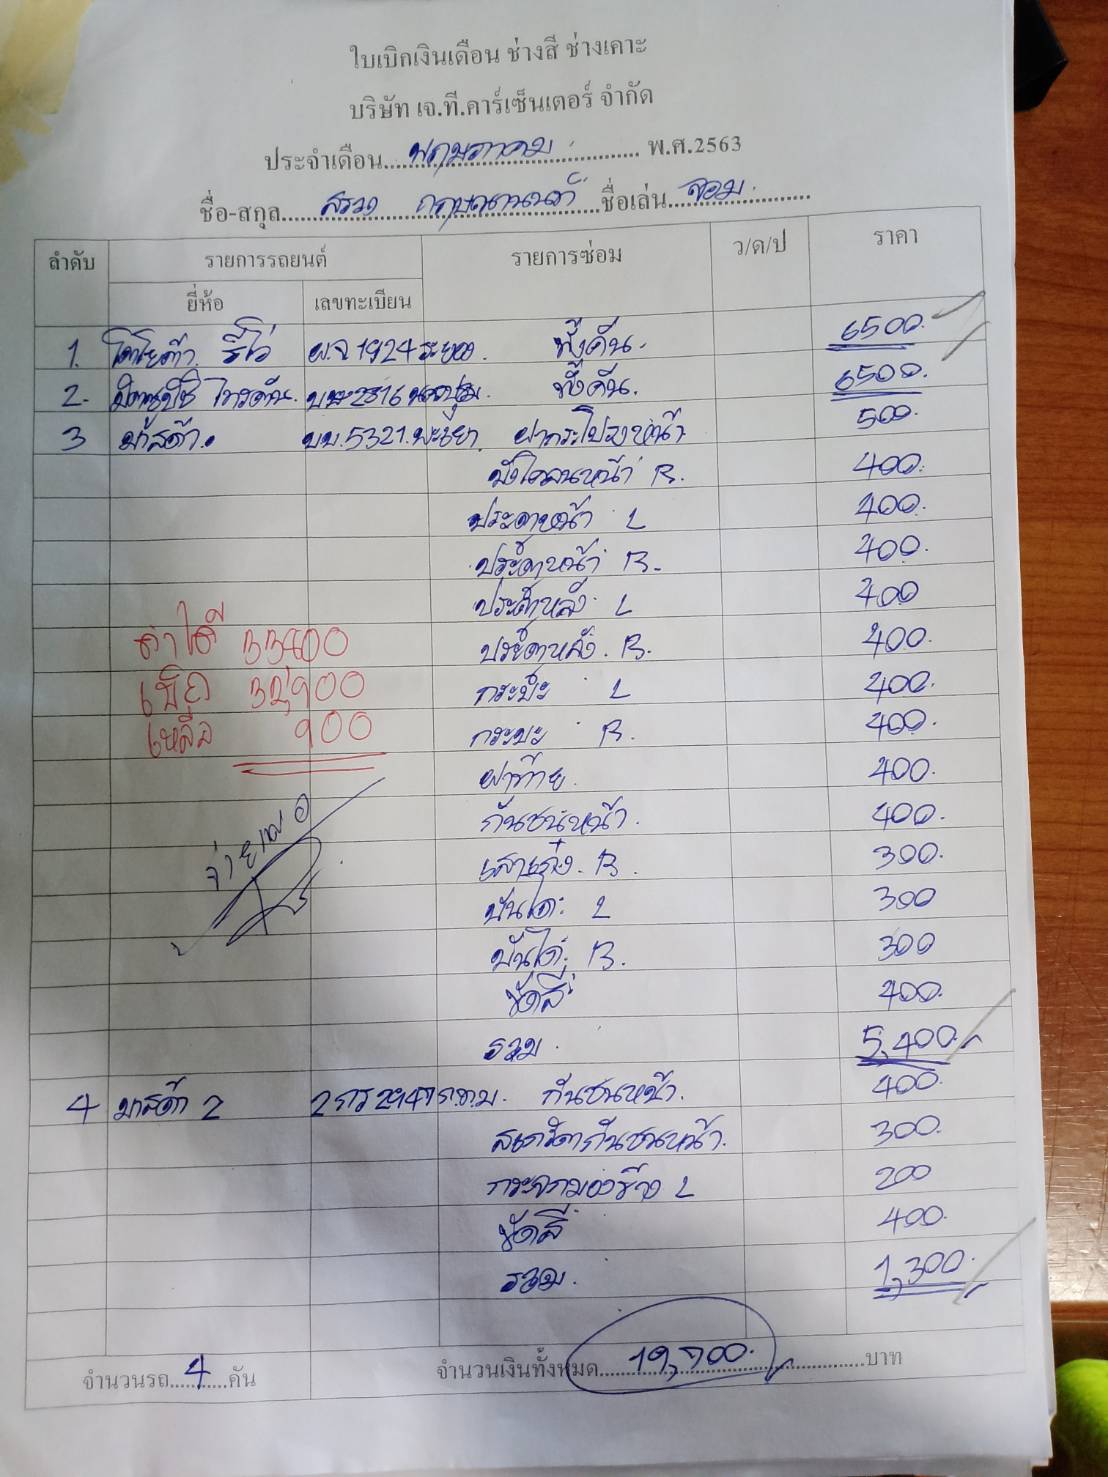 ใบเบิกเงินเดือน ช่างสี ช่างเคาะ
บริษัท เจ.ที.คาร์เซ็นเตอร์ จำกัด
ประจำเดือน....พฤษภาคม.... พ.ศ.2563
ชื่อ-สกุล.... ....ชื่อเล่น....จอม....
ลำดับ รายการรถยนต์ รายการซ่อม ว/ด/ป ราคา
ยี่ห้อ เลขทะเบียน
1. โตโยต้า รีโว่ ผจ 1924 ระยอง. ทั้งคัน. 6500.
2. มิตซูบิชิ ไทรทัน. 2316 ทั้งคัน. 6500.
3 มาสด้า. บบ.5321.พะเยา ฝากระโปรงหน้า 500.
บังโคลนหน้า R. 400.
ประตูหน้า L 400.
ประตูหน้า R. 400.
ประตูหลัง L 400
ประตูหลัง. R. 400.
กระบะ L 400.
กระบะ R. 400.
ฝาท้าย. 400.
กันชนหน้า. 400.
R. 300.
บันได L 300
บันได R. 300
ขัดสี 400.
รวม. 5,400.
4 มาสด้า 2 กทม. กันชนหน้า. 400.
สเกิร์ตกันชนหน้า. 300.
กระจกมองข้าง L 200
ขัดสี 400.
รวม. 1,300.
ค่าได้ 33400
เบิก 32,900
เหลือ 900
จำนวนรถ....4....คัน จำนวนเงินทั้งหมด....19,700.....บาท